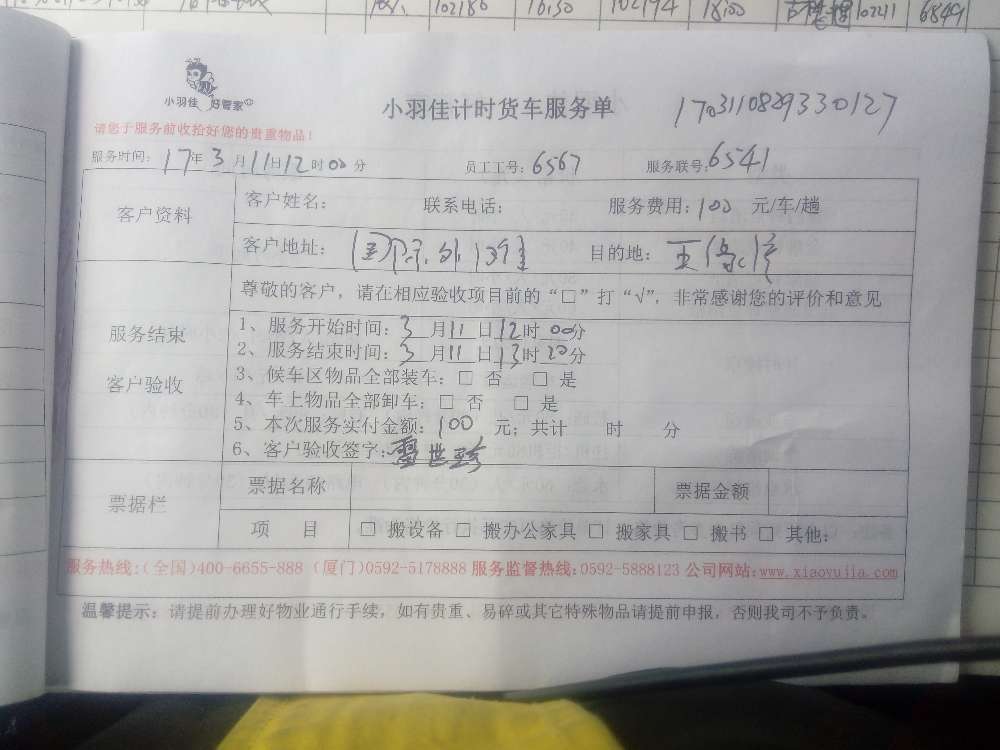 102186 16:30 102194 18:00 10241 6849
小羽佳 好管家
小羽佳计时货车服务单 170311082933 0127
请您于服务前收拾好您的贵重物品！
服务时间：17年3月11日12时00分 员工工号：6567 服务联号：6541
客户资料
客户姓名： 联系电话： 服务费用：100 元/车/趟
客户地址： 目的地：
服务结束
客户验收
尊敬的客户，请在相应验收项目前的“□”打“√”，非常感谢您的评价和意见
1、服务开始时间：3月11日12时00分
2、服务结束时间：3月11日13时20分
3、候车区物品全部装车：□ 否 □ 是
4、车上物品全部卸车：□ 否 □ 是
5、本次服务实付金额：100 元；共计 时 分
6、客户验收签字：雷世珍
票据栏
票据名称 票据金额
项 目 □ 搬设备 □ 搬办公家具 □ 搬家具 □ 搬书 □ 其他：
服务热线：(全国)400-6655-888 (厦门)0592-5178888 服务监督热线：0592-5888123 公司网站：www.xiaoyujia.com
温馨提示：请提前办理好物业通行手续，如有贵重、易碎或其它特殊物品请提前申报，否则我司不予负责。